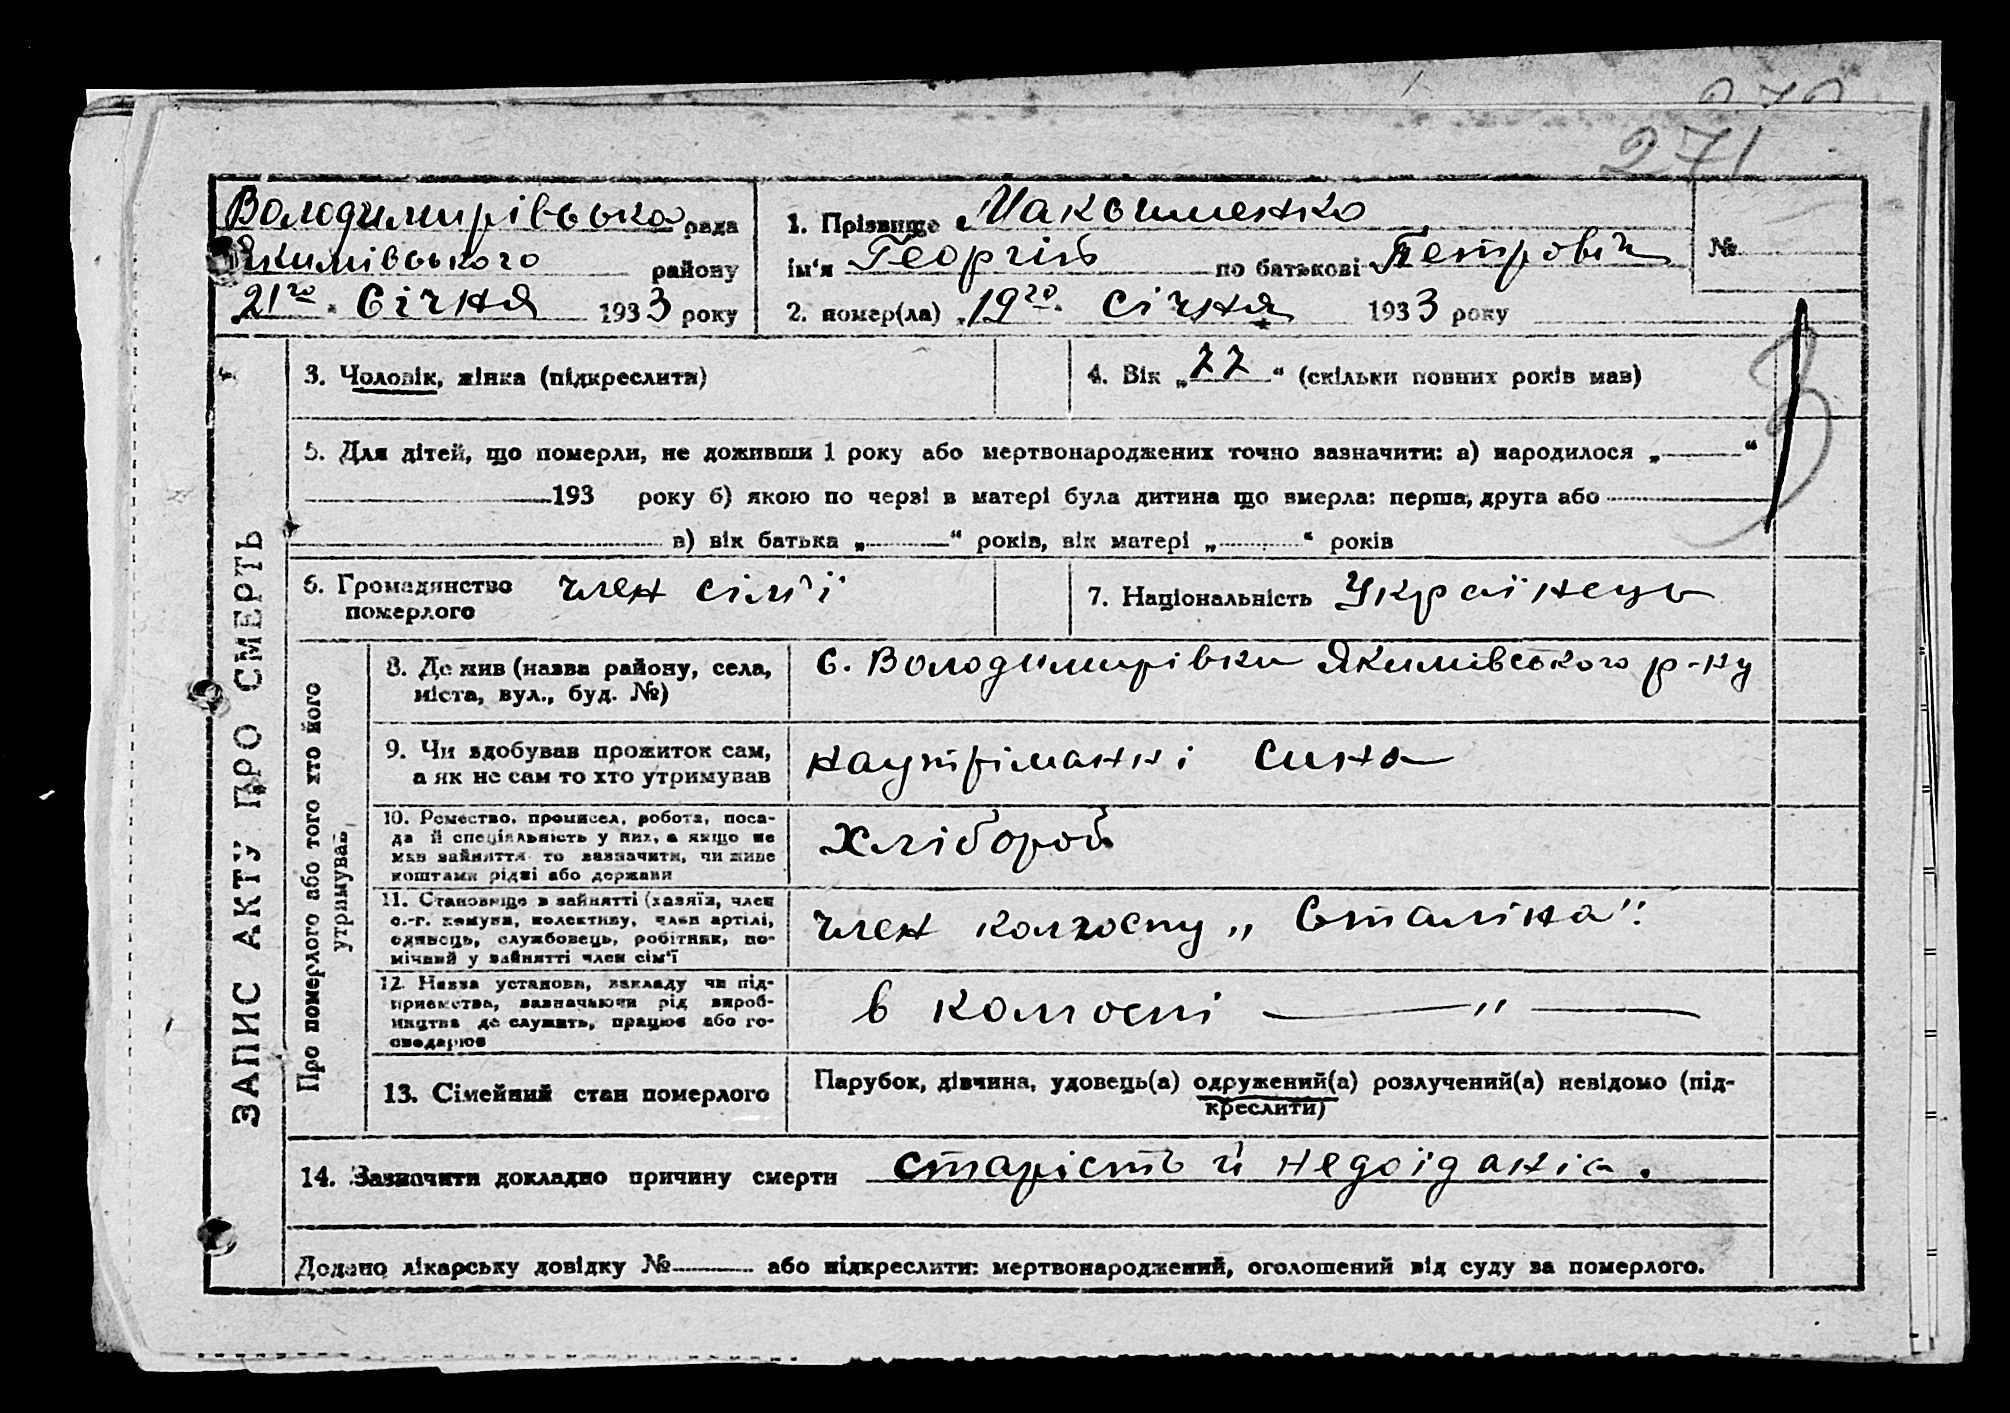 272
271
Володимирівська рада
Якимівського району
21го Січня 1933 року
1. Прізвище Максименко
ім'я Георгій по батькові Петрович
№
2. помер(ла) „19го“ січня 1933 року
ЗАПИС АКТУ ПРО СМЕРТЬ
3. Чоловік, жінка (підкреслити)
4. Вік „77“ (скільки повних років мав)
5. Для дітей, що померли, не доживши 1 року або мертвонароджених точно зазначити: а) народилося „ “
193 року б) якою по черзі в матері була дитина що вмерла: перша, друга або
в) вік батька „ “ років, вік матері „ “ років
6. Громадянство член сім'ї
померлого
7. Національність Українець
Про померлого або того хто його
утримував
8. Де жив (назва району, села,
міста, вул., буд. №)
с. Володимирівки Якимівського р-ну
9. Чи здобував прожиток сам,
а як не сам то хто утримував
наутріманні сина
10. Ремество, промисел, робота, поса-
да й спеціяльність у них, а якщо не
мав зайняття то зазначити, чи живе
коштами рідні або держави
Хлібороб
11. Становище в зайнятті (хазяїн, член
с.-г. комуни, колективу, член артілі,
одинець, службовець, робітник, по-
мічний у зайнятті член сім'ї
член колгоспу „Сталіна“
12. Назва установи, закладу чи під-
приємства, зазначаючи рід вироб-
ництва де служить, працює або го-
сподарює
в колгоспі — " —
13. Сімейний стан померлого
Парубок, дівчина, удовець(а) одружений(а) розлучений(а) невідомо (під-
креслити)
14. Зазначити докладно причину смерти старість й недоїданіа.
Додано лікарську довідку № або підкреслити: мертвонароджений, оголошений від суду за померлого.